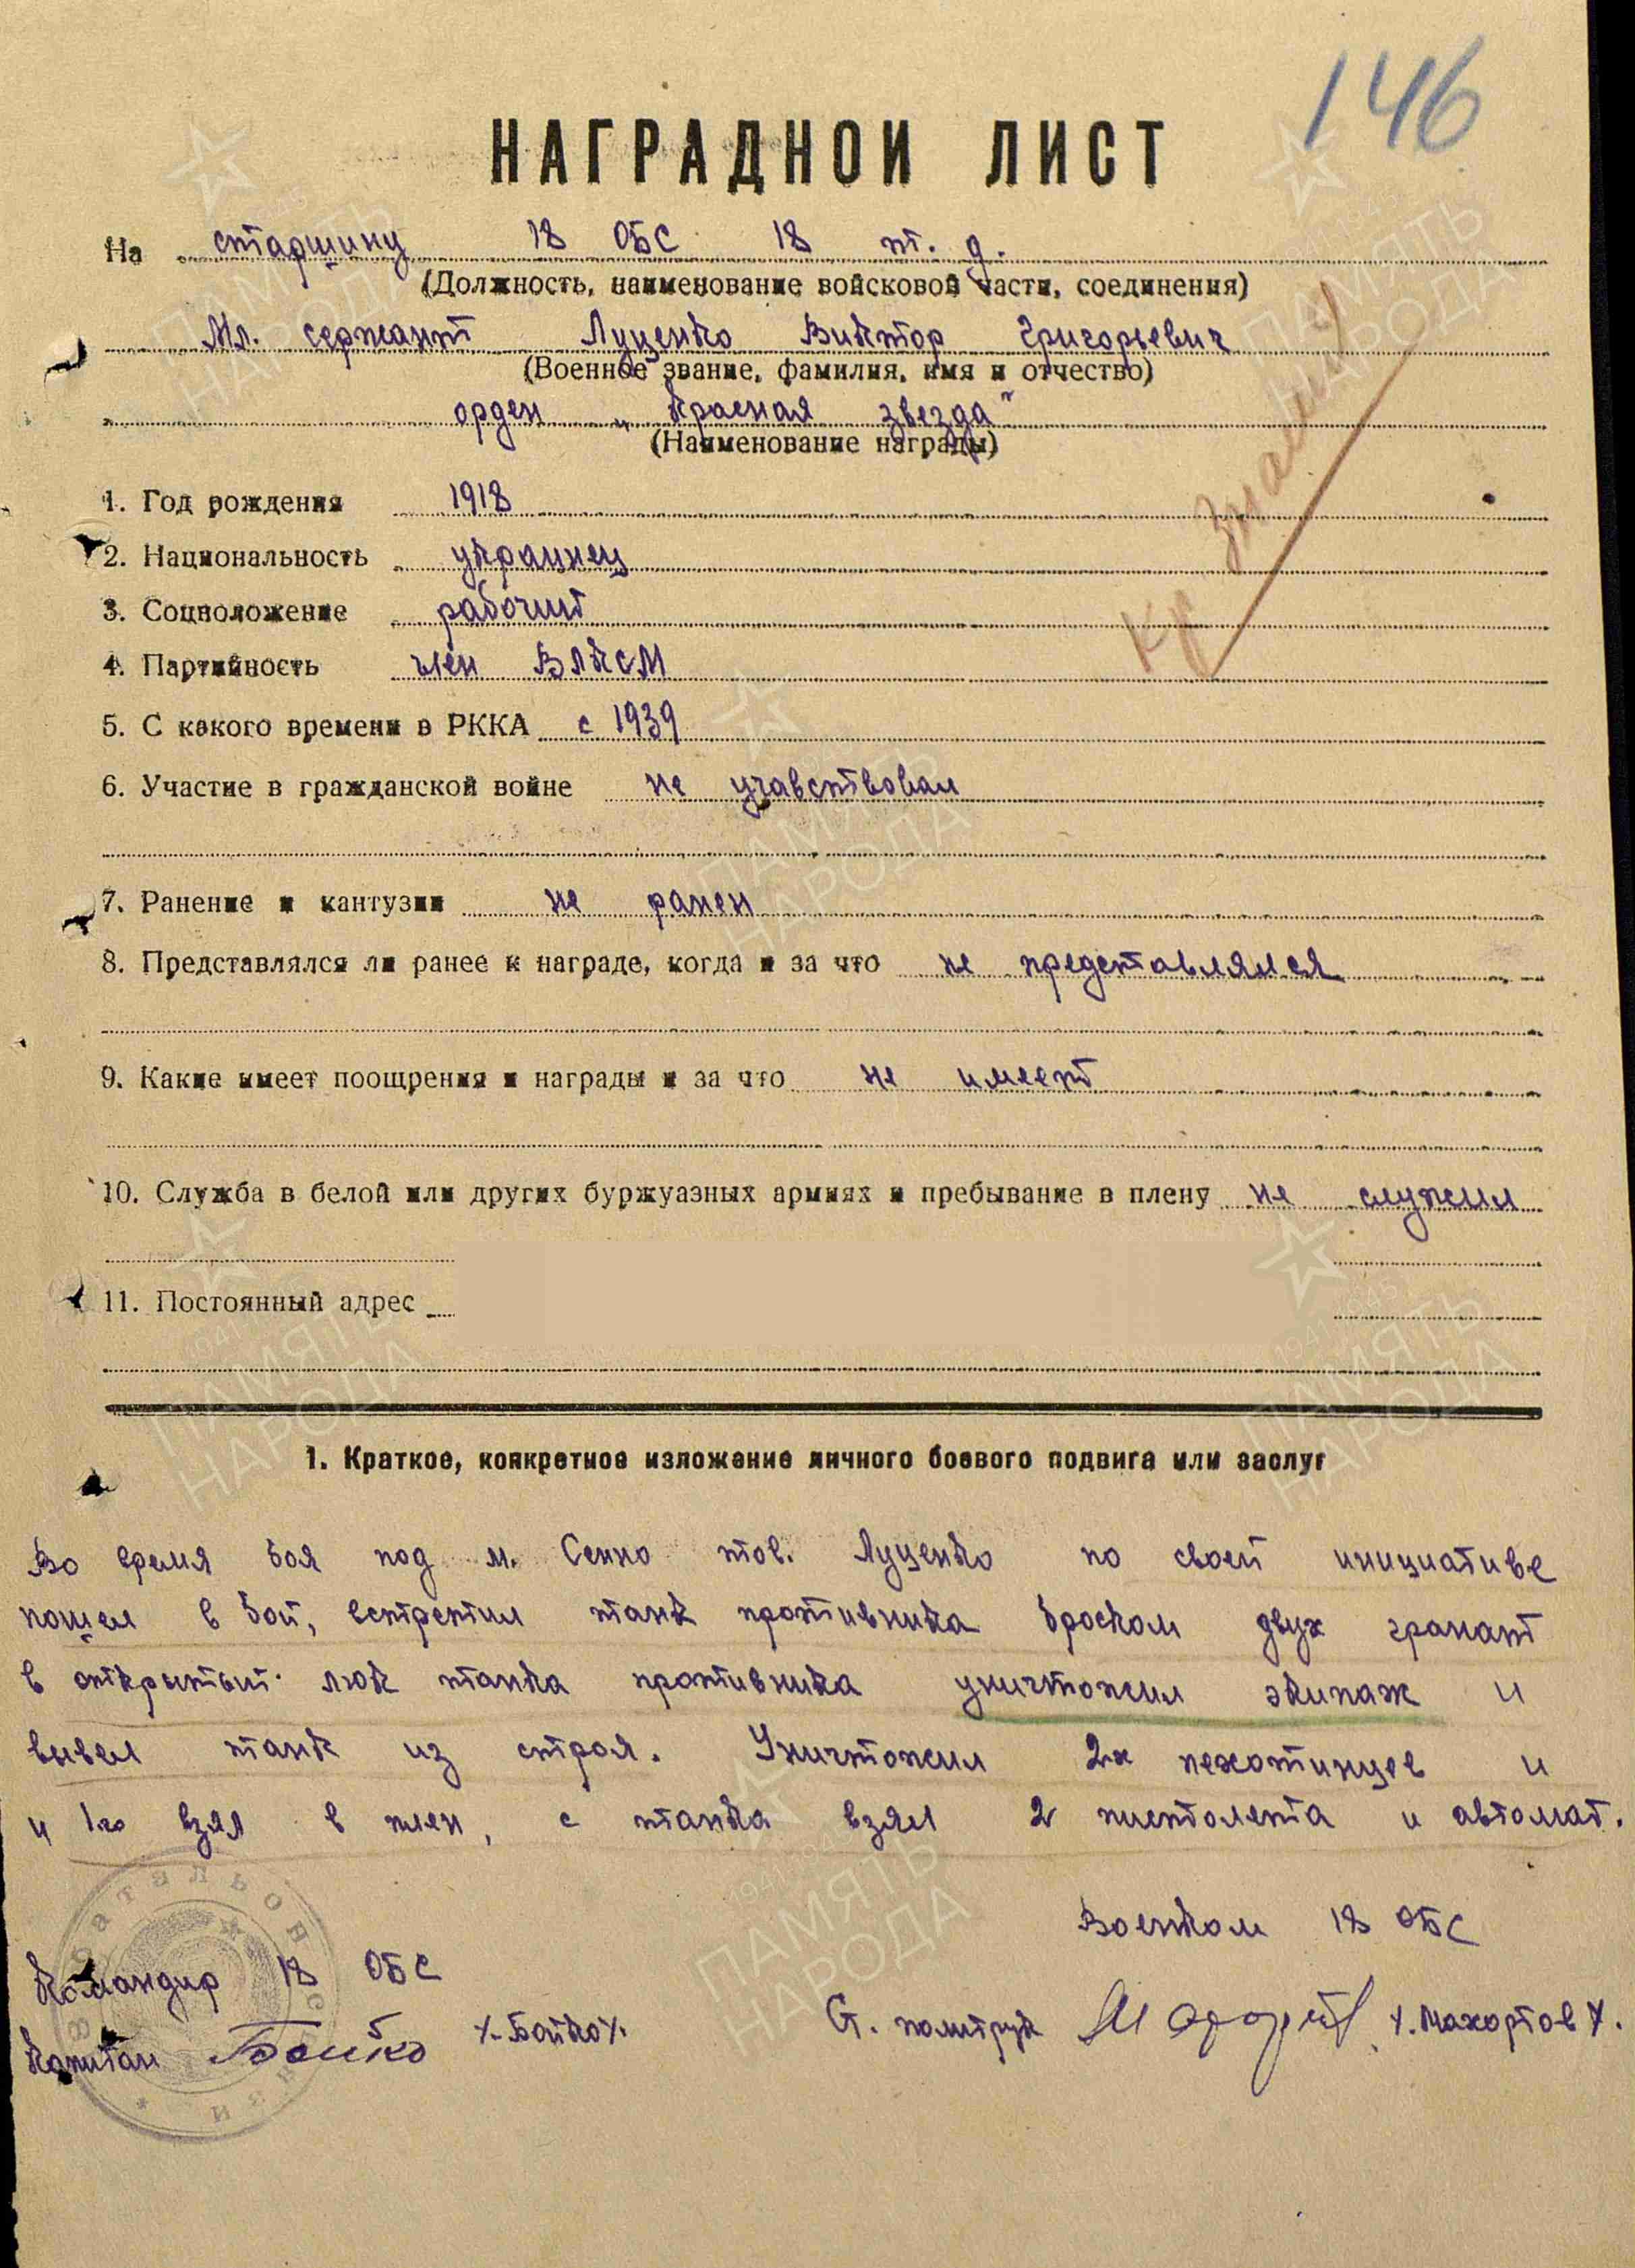 146
НАГРАДНОЙ ЛИСТ
На старшину 18 ОБС 18 т. д.
(Должность, наименование войсковой части, соединения)
Мл. сержант Луценко Виктор Григорьевич
(Военное звание, фамилия, имя и отчество)
орден „Красная звезда"
(Наименование награды)
Кр Знамя
1. Год рождения 1918
2. Национальность украинец
3. Соцположение рабочий
4. Партийность член ВЛКСМ
5. С какого времени в РККА с 1939
6. Участие в гражданской войне не учавствовал
7. Ранение и кантузии не ранен
8. Представлялся ли ранее к награде, когда и за что не представлялся
9. Какие имеет поощрения и награды и за что не имеет
10. Служба в белой или других буржуазных армиях и пребывание в плену не служил
11. Постоянный адрес
1. Краткое, конкретное изложение личного боевого подвига или заслуг
Во время боя под м. Сенно тов. Луценко по своей инициативе
пошел в бой, встретил танк противника броском двух гранат
в открытый люк танка противника уничтожил экипаж и
вывел танк из строя. Уничтожил 2х пехотинцев и
и 1го взял в плен, с танка взял 2 пистолета и автомат.
Военком 18 ОБС
Командир 18 ОБС
Капитан Бойко /-Бойко/. Ст. политрук /.Махортов/.
ПАМЯТЬ НАРОДА
1941 1945